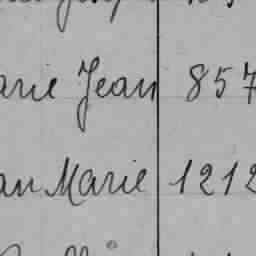 arie Jean 857
an Marie 1212